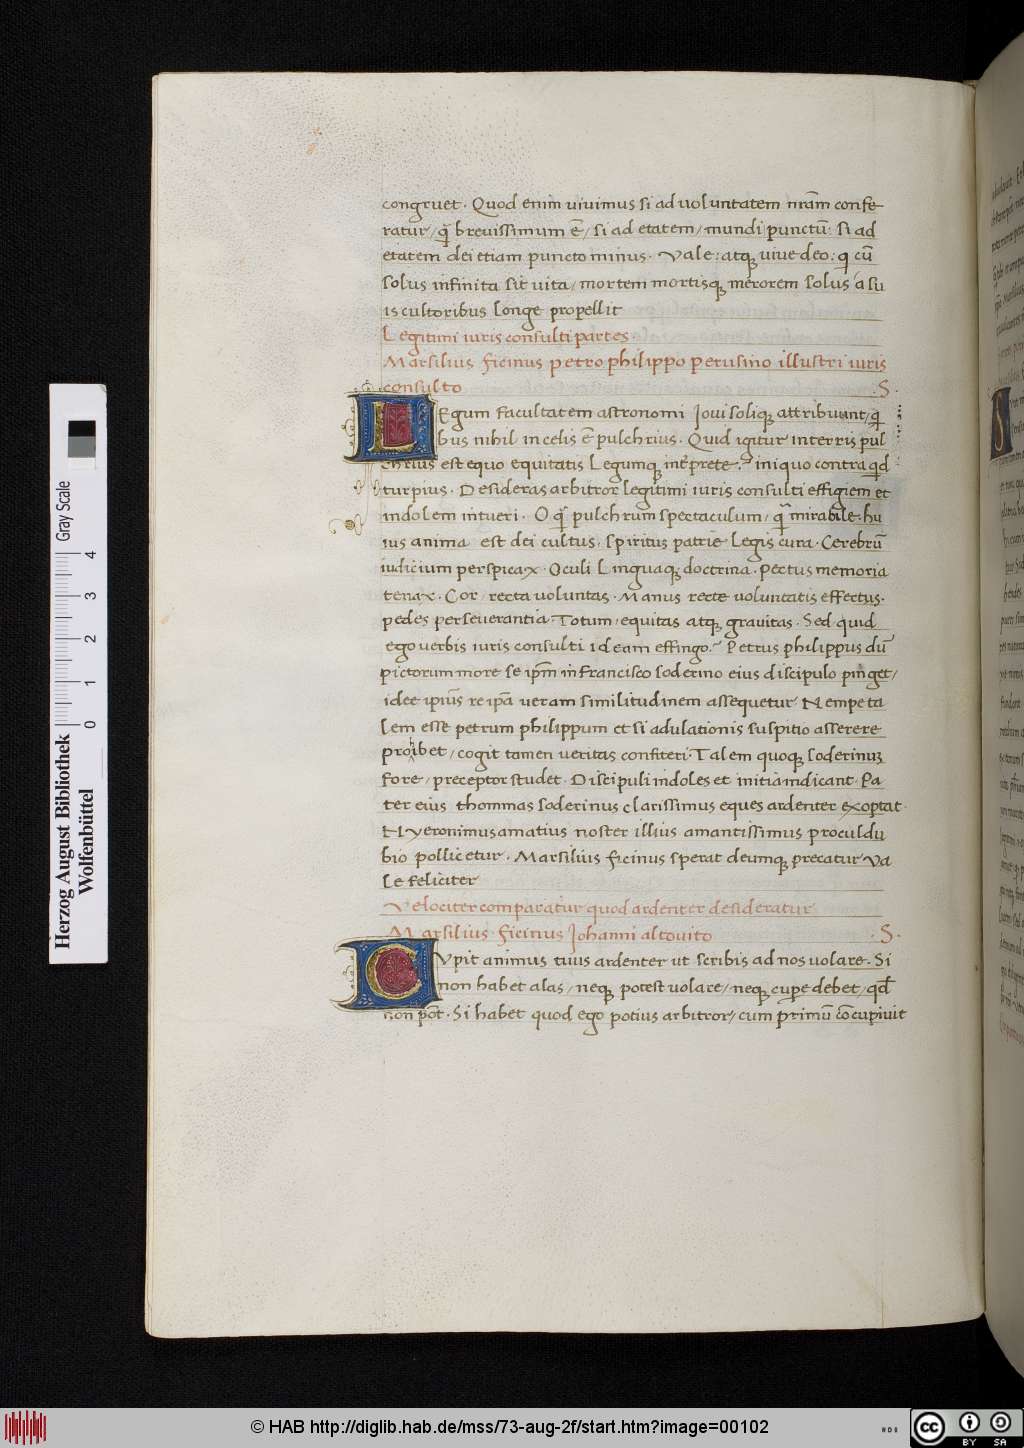 congruet. Quod enim uiuimus si ad uoluntatem nr̄am confe
ratur, q̄ breuissimum ē, si ad etatem, mundi punctū: si ad
etatem dei etiam puncto minus. Vale: atq; uiue deo: q cū
solus infinita sit uita, mortem mortisq; merorem solus a su
is cultoribus longe propellit
Legitimi iuris consulti partes
Marsilius ficinus petro philippo perusino illustri iuris
consulto .S.
LEgum facultatem astronomi Ioui soliq; attribuunt, q̄
bus nihil in celis ē pulchrius. Quid igitur in terris pul
chrius est equo equitatis Legumq; int̄prete? iniquo contra qd
turpius. Desideras arbitror legitimi iuris consulti effigiem et
indolem intueri. O q̄ pulchrum spectaculum, q̄ mirabile. hu
ius anima est dei cultus. spiritus patrie Legis cura. Cerebrū
iudicium perspicax. Oculi Linguaq; doctrina. Pectus memoria
tenax. Cor, recta uoluntas. Manus recte uoluntatis effectus.
pedes perseuerantia. Totum, equitas atq; grauitas. Sed quid
ego uerbis iuris consulti ideam effingo? Petrus philippus dū
pictorum more se ip̄m in francisco soderino eius discipulo pinget,
idee ipiūs re ip̄a ueram similitudinem assequetur Nempe ta
lem esse petrum philippum et si adulationis suspitio asserere
prohibet, cogit tamen ueritas confiteri. Talem quoq; soderinum
fore, preceptor studet. Discipuli indoles et initia indicant. Pa
ter eius thommas soderinus clarissimus eques ardenter exoptat.
Hyeronimus amatius noster illius amantissimus proculdu
bio pollicetur. Marsilius ficinus sperat deumq; precatur Va
le feliciter
Velociter comparatur quod ardenter desideratur
Marsilius. ficinus Johanni altouito .S.
CVpit animus tuus ardenter ut scribis ad nos uolare. Si
non habet alas, neq; potest uolare, neq; cup̄e debet, qd̄
non pōt. Si habet quod ego potius arbitror, cum primū c̄ocupiuit
Herzog August Bibliothek
Wolfenbüttel
Gray Scale
0 1 2 3 4
© HAB http://diglib.hab.de/mss/73-aug-2f/start.htm?image=00102
cc BY SA